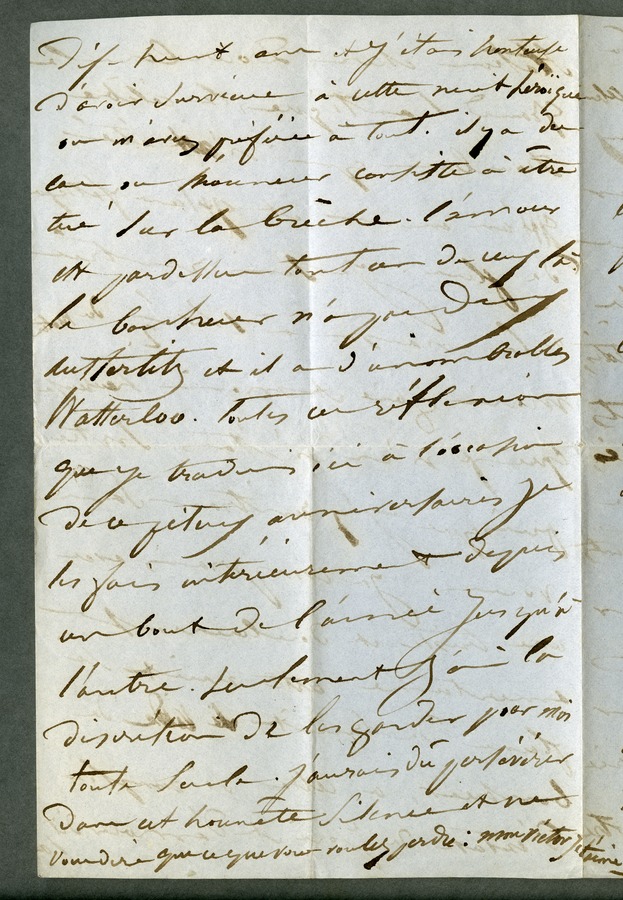 dix-huit ans et j'étais honteuse
d'avoir survécue à cette nuit héroïque
où m'avez préférée à tout. il y a des
cas où l'honneur consiste à être
tué sur la brèche. l'amour
est pardessus tout un de ceux là
le bonheur n'a pas deux
Austerlitz et il a d'innombrables
Watterloo. toutes ces réflexions
que je traduis ici à l'occasion
de ce anniversaires je
les fais intérieurement depuis
un bout de l'année jusqu'à
l'autre. seulement j'ai la
discrétion de les garder pour moi
toute seule. j'aurais dû persévérer
dans cet honnête silence et ne
vous dire que ce que vous voulez : mon Victor je t'aime